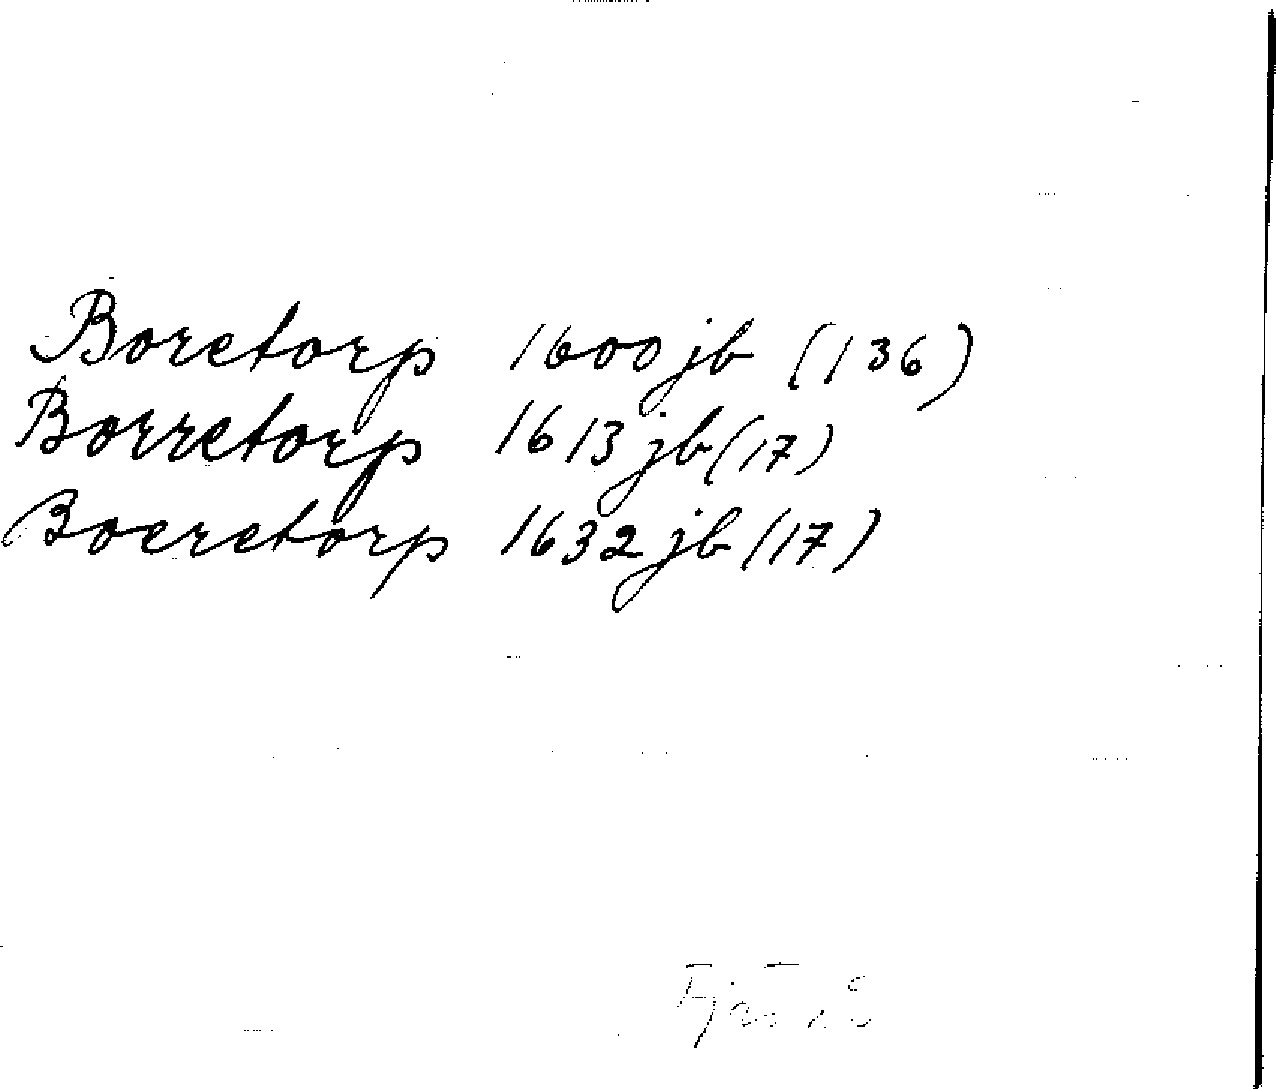 Boretorp 1600 jb (136)
Borretorp 1613 jb (17)
Boeretorp 1632 jb (17)